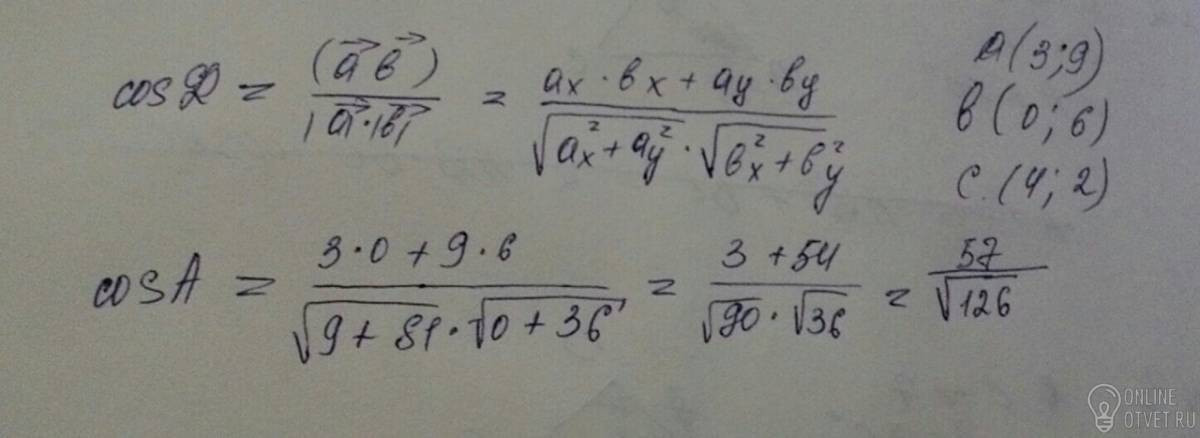 cos α = (a⃗ b⃗) / |a⃗|·|b⃗| = (ax · bx + ay · by) / (√(ax² + ay²) · √(bx² + by²))
A (3;9)
B (0; 6)
C. (4; 2)
cos A = (3·0 + 9·6) / (√(9 + 81) · √(0 + 36)) = (3 + 54) / (√90 · √36) = 57 / √126
ONLINE
OTVET.RU